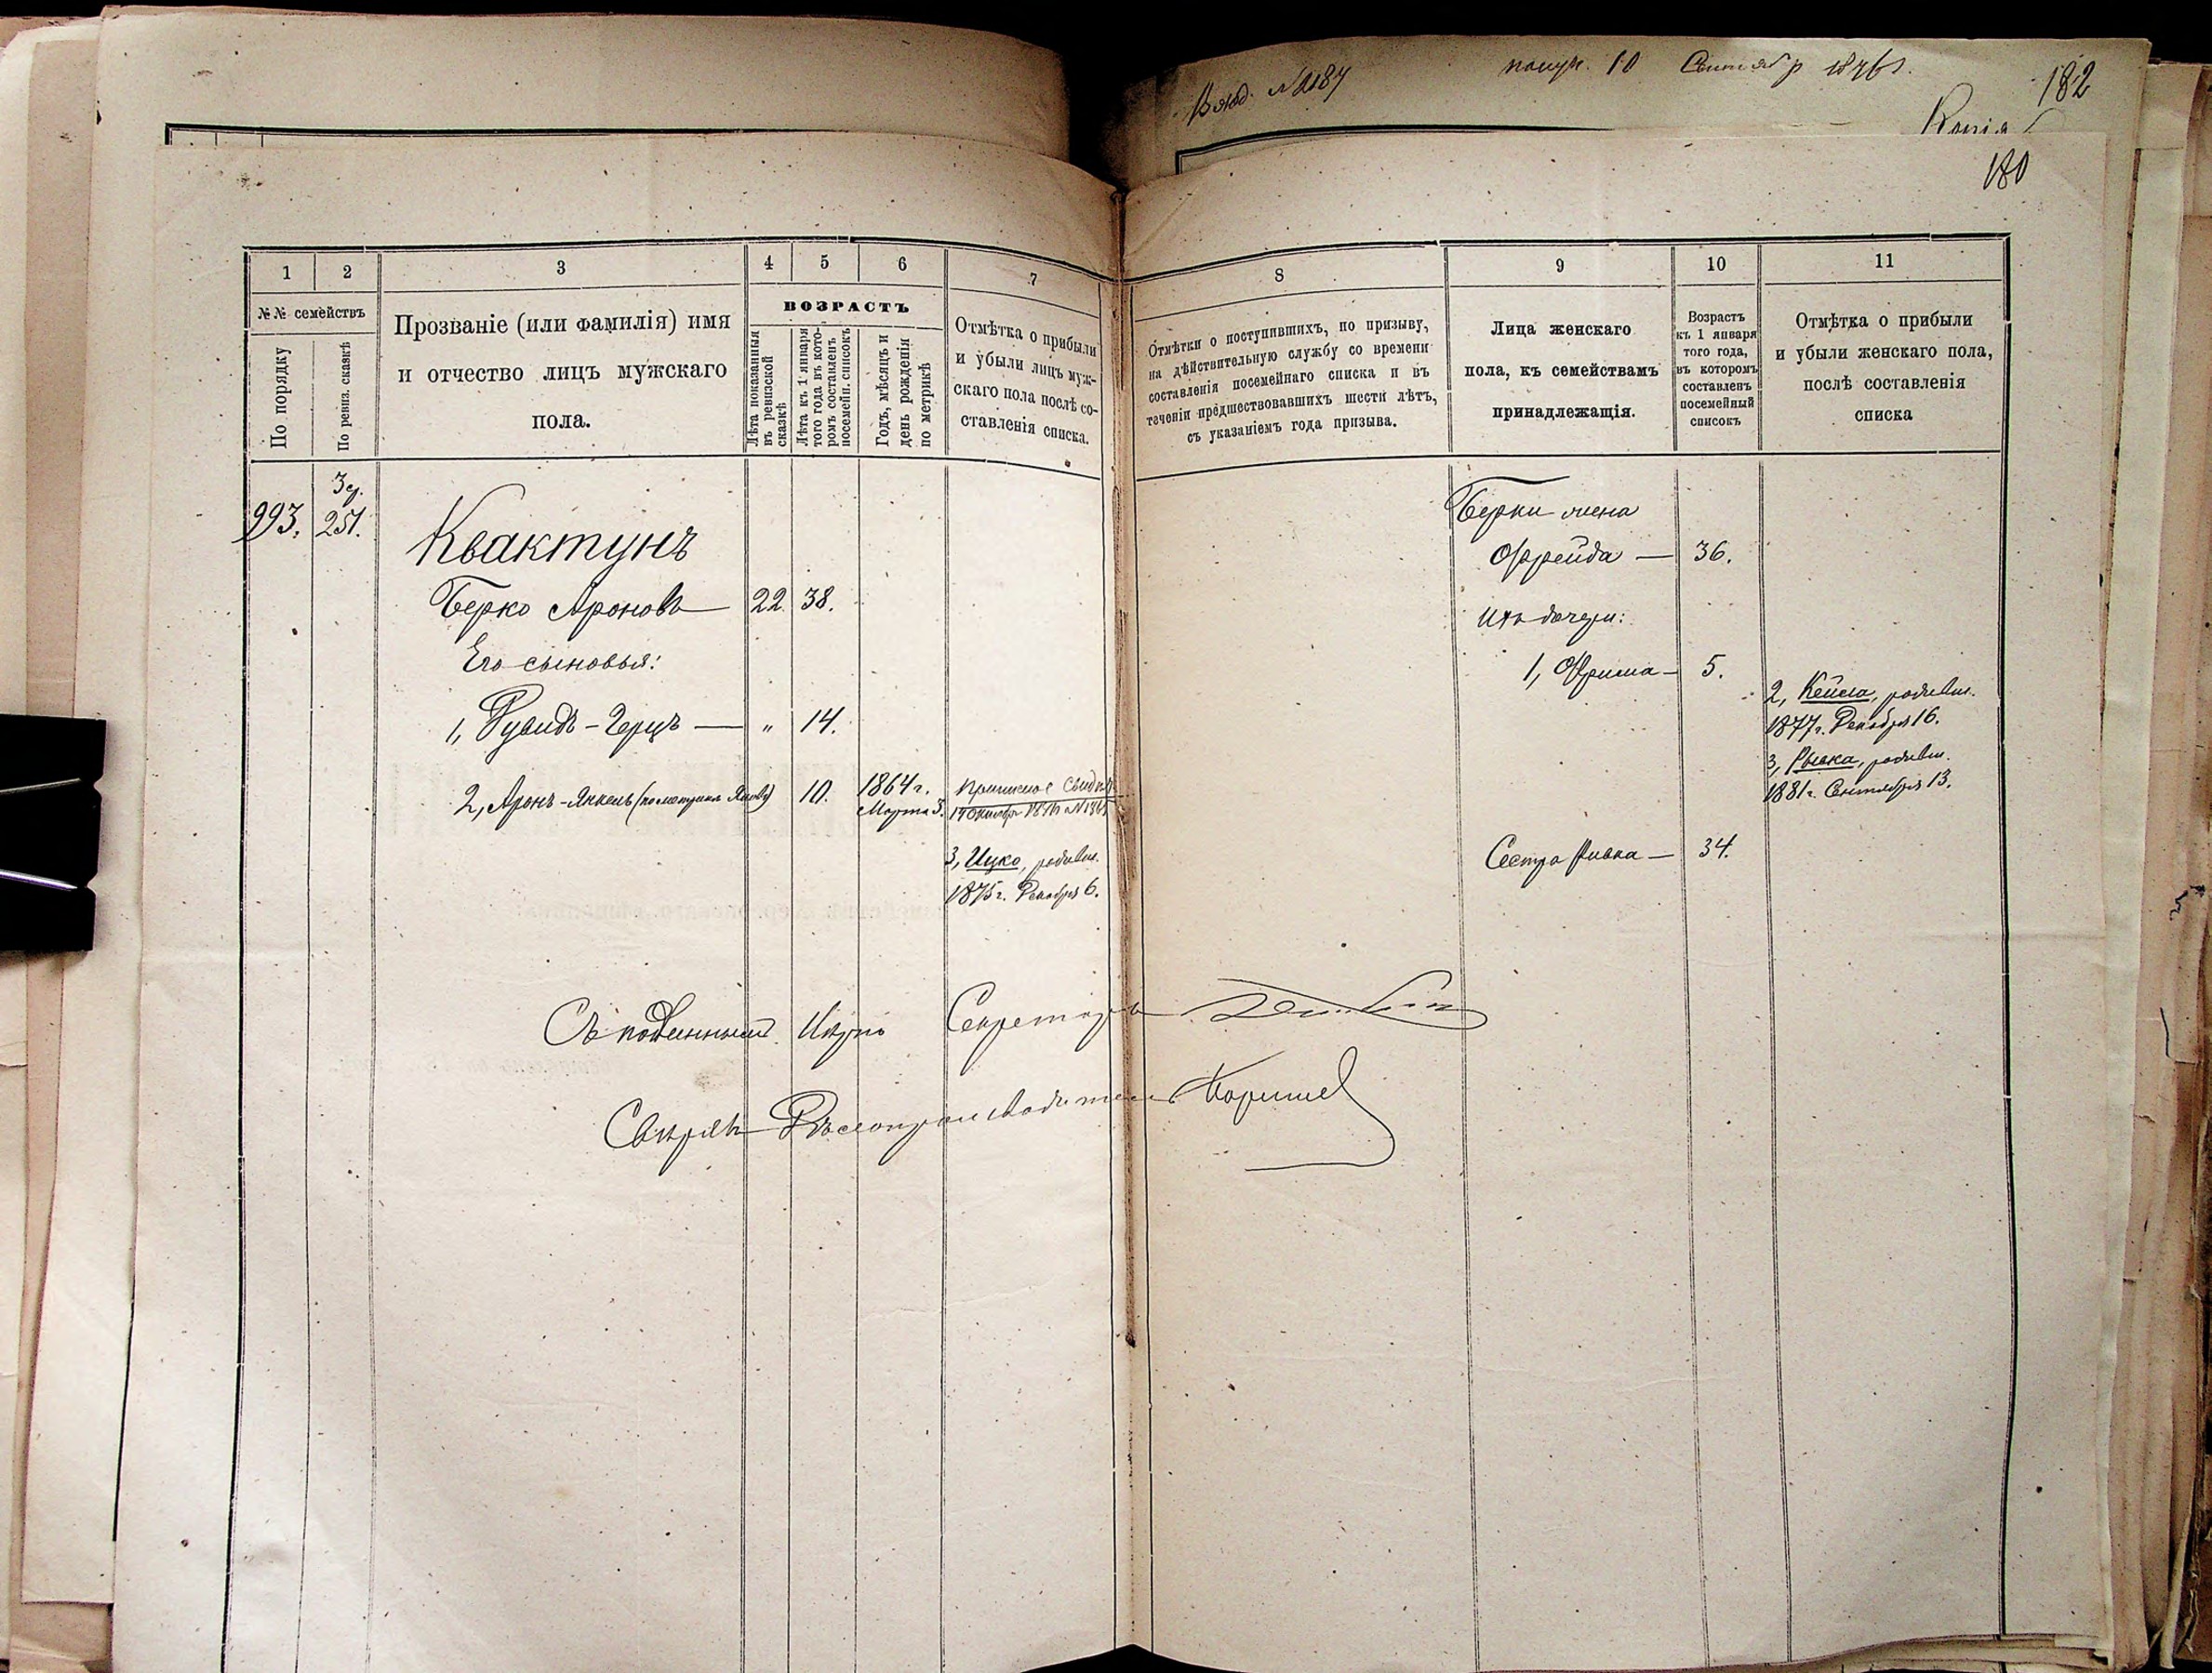 Вход. №2187
получ. 10 Сентябр 1876 г.
182
Копія
180
1
2
3
4
5
6
7
№№ семействъ
По порядку
По ревиз. сказкѣ
Прозваніе (или фамилія) имя
и отчество лицъ мужскаго
пола.
ВОЗРАСТЪ
Лѣта показанныя
въ ревизской
сказкѣ
Лѣта къ 1 января
того года въ кото-
ромъ составленъ
посемейн. списокъ
Годъ, мѣсяцъ и
день рожденія
по метрикѣ
Отмѣтка о прибыли
и убыли лицъ муж-
скаго пола послѣ со-
ставленія списка.
8
9
10
11
Отмѣтки о поступившихъ, по призыву,
на дѣйствительную службу со времени
составленія посемейнаго списка и въ
теченіи предшествовавшихъ шести лѣтъ,
съ указаніемъ года призыва.
Лица женскаго
пола, къ семействамъ
принадлежащія.
Возрастъ
къ 1 января
того года,
въ которомъ
составленъ
посемейный
списокъ
Отмѣтка о прибыли
и убыли женскаго пола,
послѣ составленія
списка
993.
251.
Квактунъ
Берко Ароновъ 22. 38.
Его сыновья:
1, Рувидъ-Герцъ — " 14.
2, Аронъ-Янкель (по метрикѣ 10. 1864 г.
Марта 3.
3, Ицко, родивш.
1875 г. Декабря 6.
Берки жена
Фрейда — 36.
Ихъ дочери:
1, Фрима — 5.
2, Кейла, родивш.
1877 г. Декабря 16.
3, Рывка, родивш.
1881 г. Сентября 13.
Сестра Ривка — 34.
Съ подлиннымъ вѣрно Секретарь
Свѣрялъ Дѣлопроизводитель